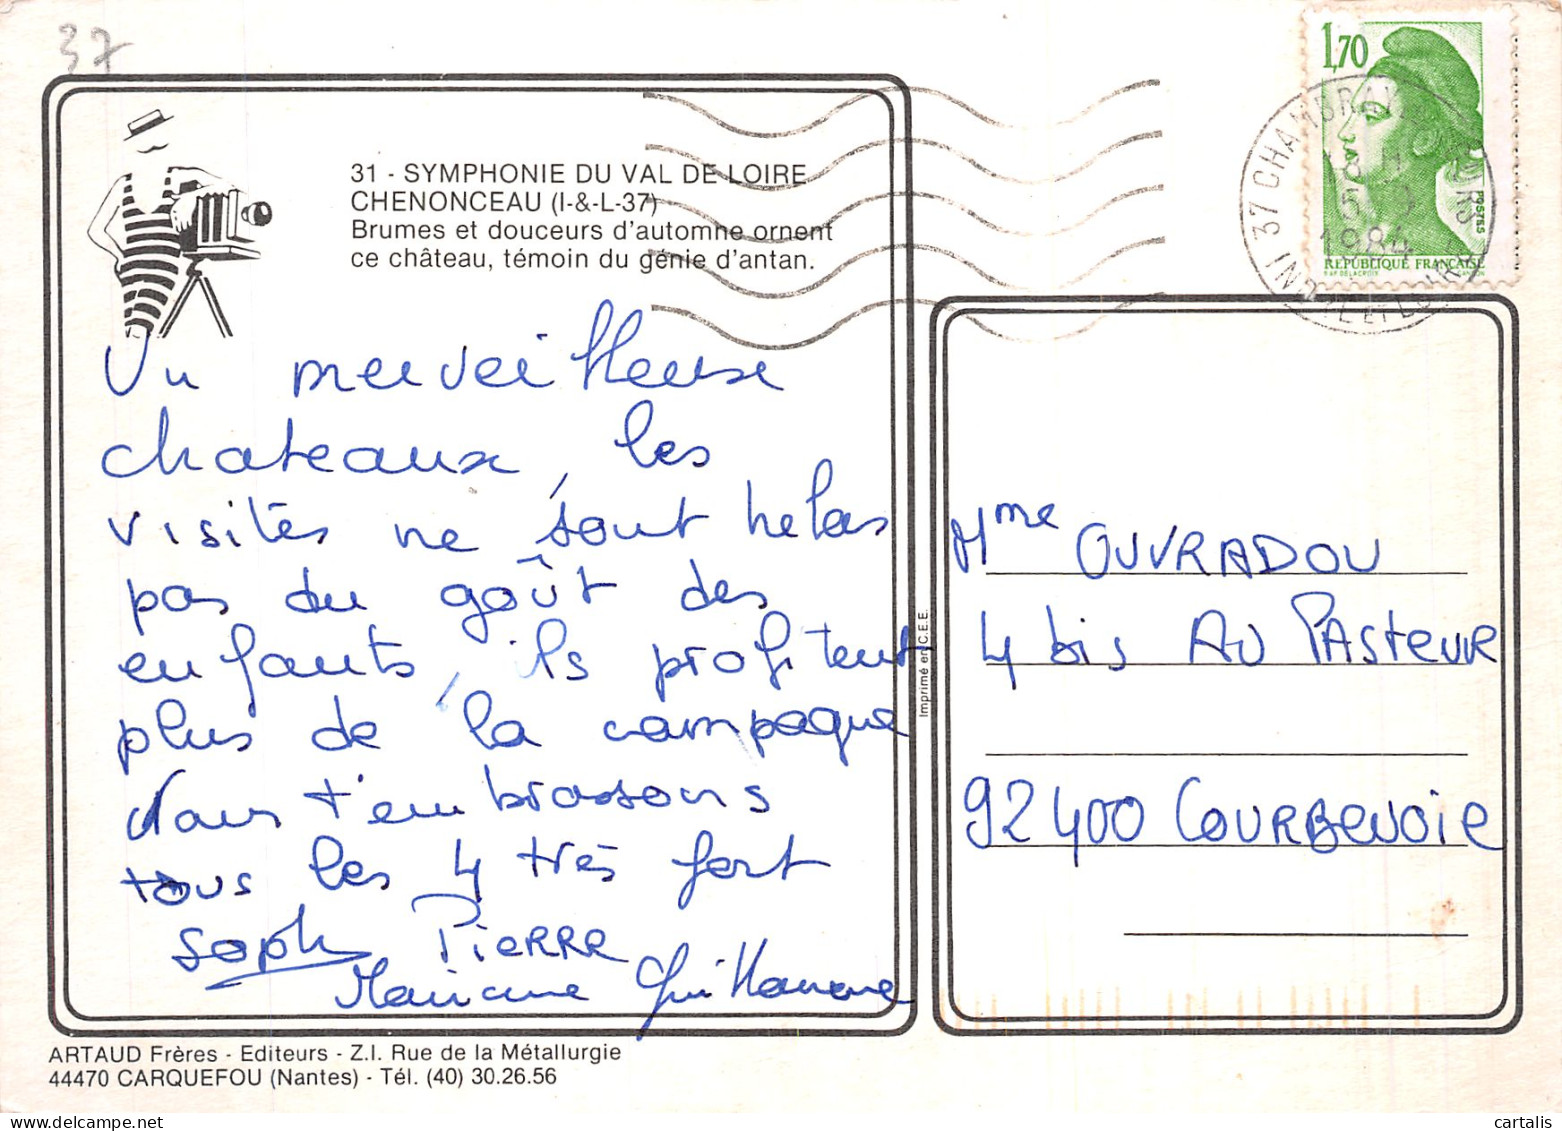 37
31 - SYMPHONIE DU VAL DE LOIRE
CHENONCEAU (I-&-L-37)
Brumes et douceurs d'automne ornent
ce château, témoin du génie d'antan.
Un merveilleuse
chateaux, les
visités ne sont helas
pas du goût des
enfants, ils profitent
plus de la campagne
Nous t'embrassons
tous les 4 très fort
Soph Pierre
Mariane Guillaume
1,70
POSTES
REPUBLIQUE FRANÇAISE
37 CHAMBRAY
TOURS
INDRE ET LOIRE
1984
Imprimé en C.E.E.
Mme OUVRADOU
4 bis AV PASTEUR
92400 COURBEVOIE
ARTAUD Frères - Editeurs - Z.I. Rue de la Métallurgie
44470 CARQUEFOU (Nantes) - Tél. (40) 30.26.56
cartalis